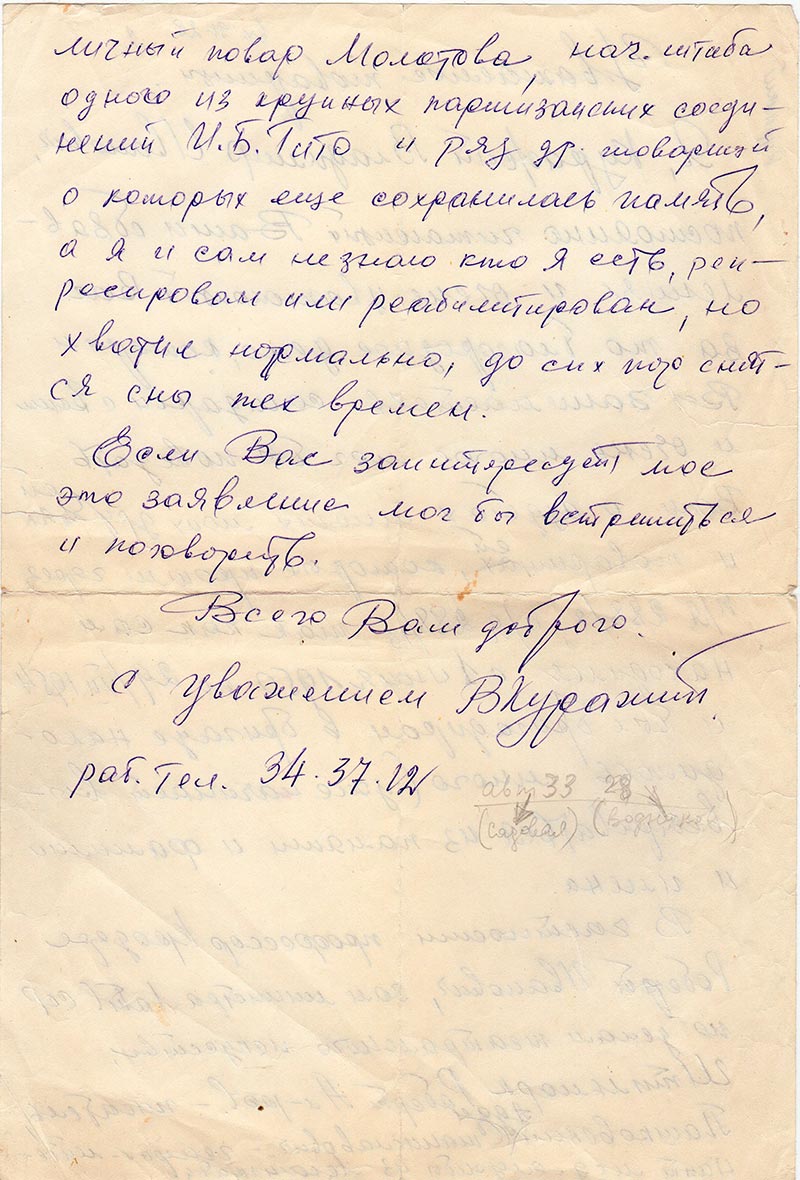 личный повар Молотова, нач. штаба
одного из крупных партизанских соеди-
нений И.Б. Тито и ряд др. товарищей
о которых еще сохранилась память,
а я и сам незнаю кто я есть, реп-
ресирован или реабилитирован, но
хватил нормально, до сих пор снят-
ся сны тех времен.
Если Вас заинтересует мое
это заявление мог бы встретиться
и поговорить.
Всего Вам доброго.
С уважением ВКуражий
раб. тел. 34.37.12
авт 33 28
(садовая) (Водников)